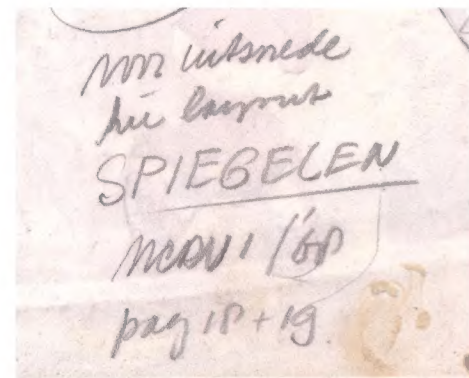 voor uitsnede
zie layout
SPIEGELEN
MCDV 1/'68
pag 18 + 19.